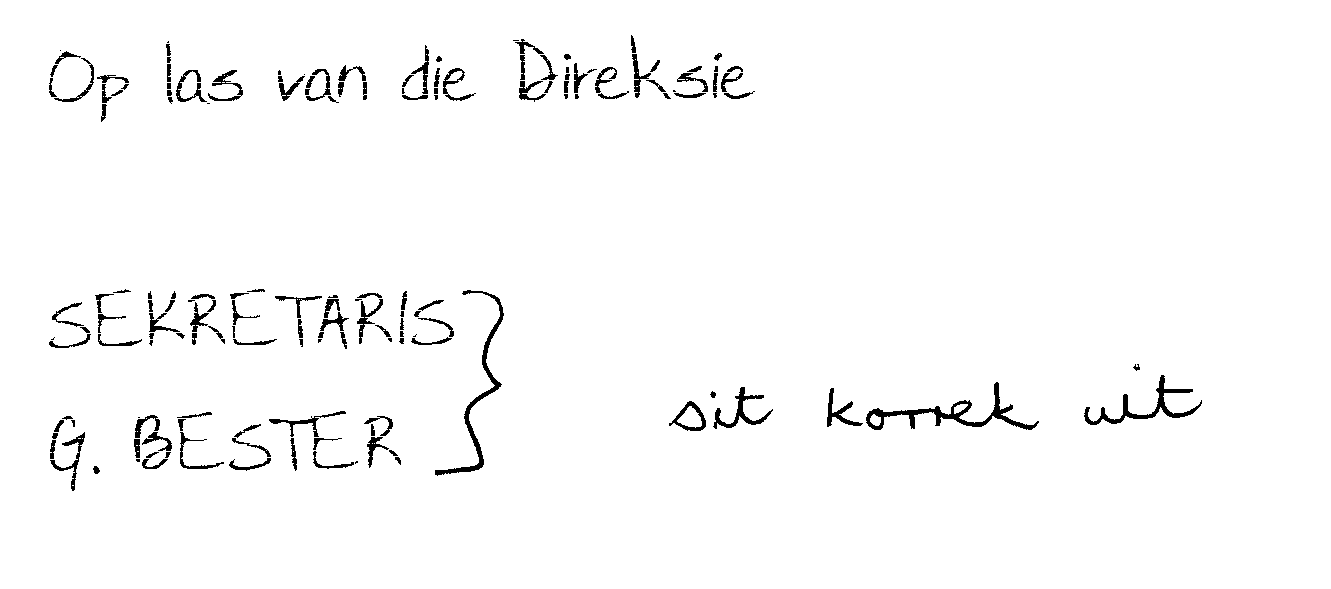 Op las van die Direksie
SEKRETARIS
G. BESTER
sit korrek uit